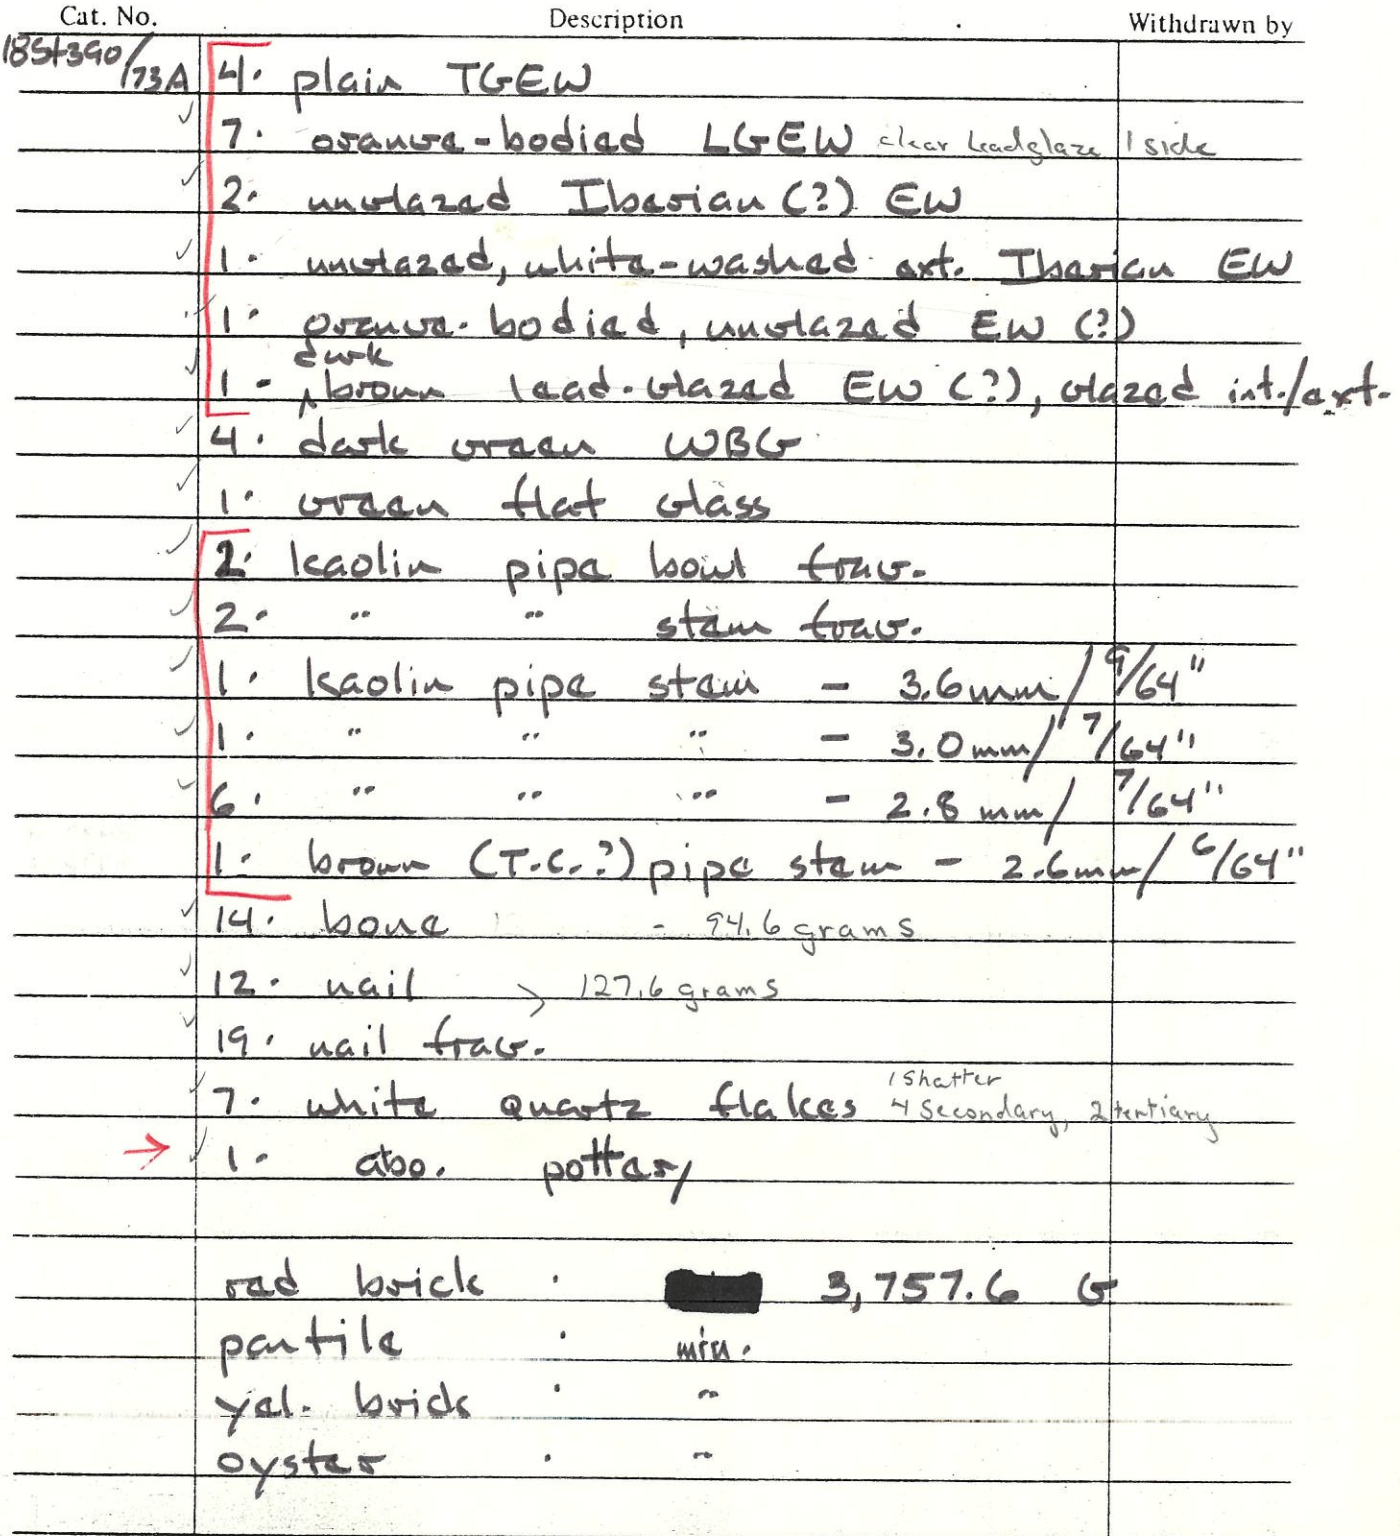 Cat. No. Description Withdrawn by
18St390/73A 4. plain TGEW
7. orange-bodied LGEW clear leadglaze 1 side
2. unglazed Iberian (?) EW
1. unglazed, white-washed ext. Iberian EW
1. orange-bodied, unglazed EW (?)
dark
1. ^brown lead-glazed EW (?), glazed int./ext.
4. dark green WBG
1. green flat glass
2. kaolin pipe bowl frag.
2. " " stem frag.
1. kaolin pipe stem - 3.6mm/ 9/64"
1. " " " - 3.0mm/ 7/64"
6. " " " - 2.8mm/ 7/64"
1. brown (T.C.?) pipe stem - 2.6mm/ 6/64"
14. bone - 94.6 grams
12. nail > 127.6 grams
19. nail frag.
1 Shatter
7. white quartz flakes 4 Secondary, 2 tertiary
→ 1. abo. pottery
red brick . 3,757.6 G
pantile . min.
yel. brick . "
oyster . "